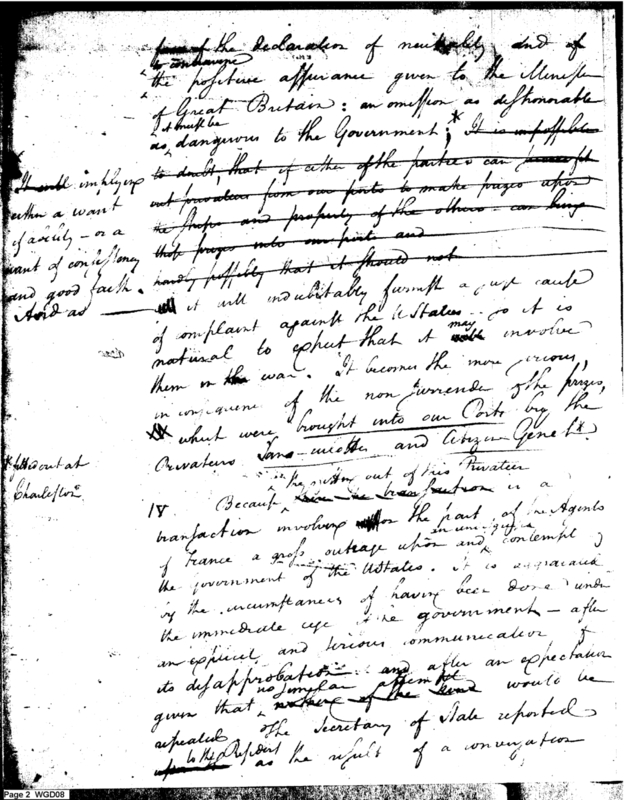 the declaration of neutrality and of
to contravene
the positive assurance given to the Minister
of Great Britain: an omission as dishonorable
it must be
as dangerous to the Government; * It is impossible
to doubt, that if either of the parties can
out privateers from our ports to make prizes upon
the ships and property of the others can bring
those prizes into our ports and
hardly possibly that it should not
It will implying
either a want
of — or a
want of consistency
and good faith.
And as
it will indubitably furnish a just cause
of complaint against the UStates so it is
may
natural to expect that it will involve
them in the war. It becomes the more serious,
in consequence of the non surrender of the prizes,
which were brought into our Ports by the
Privateers Sans-culottes and Citizen Genet*.
* fitted out at
Charleston
the out of this Privateer
IV Because is a
transaction involving on the part of the Agents
of France a gross outrage upon and contempt of
the government of the UStates. It is aggravated
by the circumstances of having been done under
the immediate eye of the government — after
an explicit and serious communication of
its disapprobation and after an expectation
no similar attempt
given that nothing of the kind would be
repeated The Secretary of State reported
to the President
as the result of a conversation
Page 2 WGD08